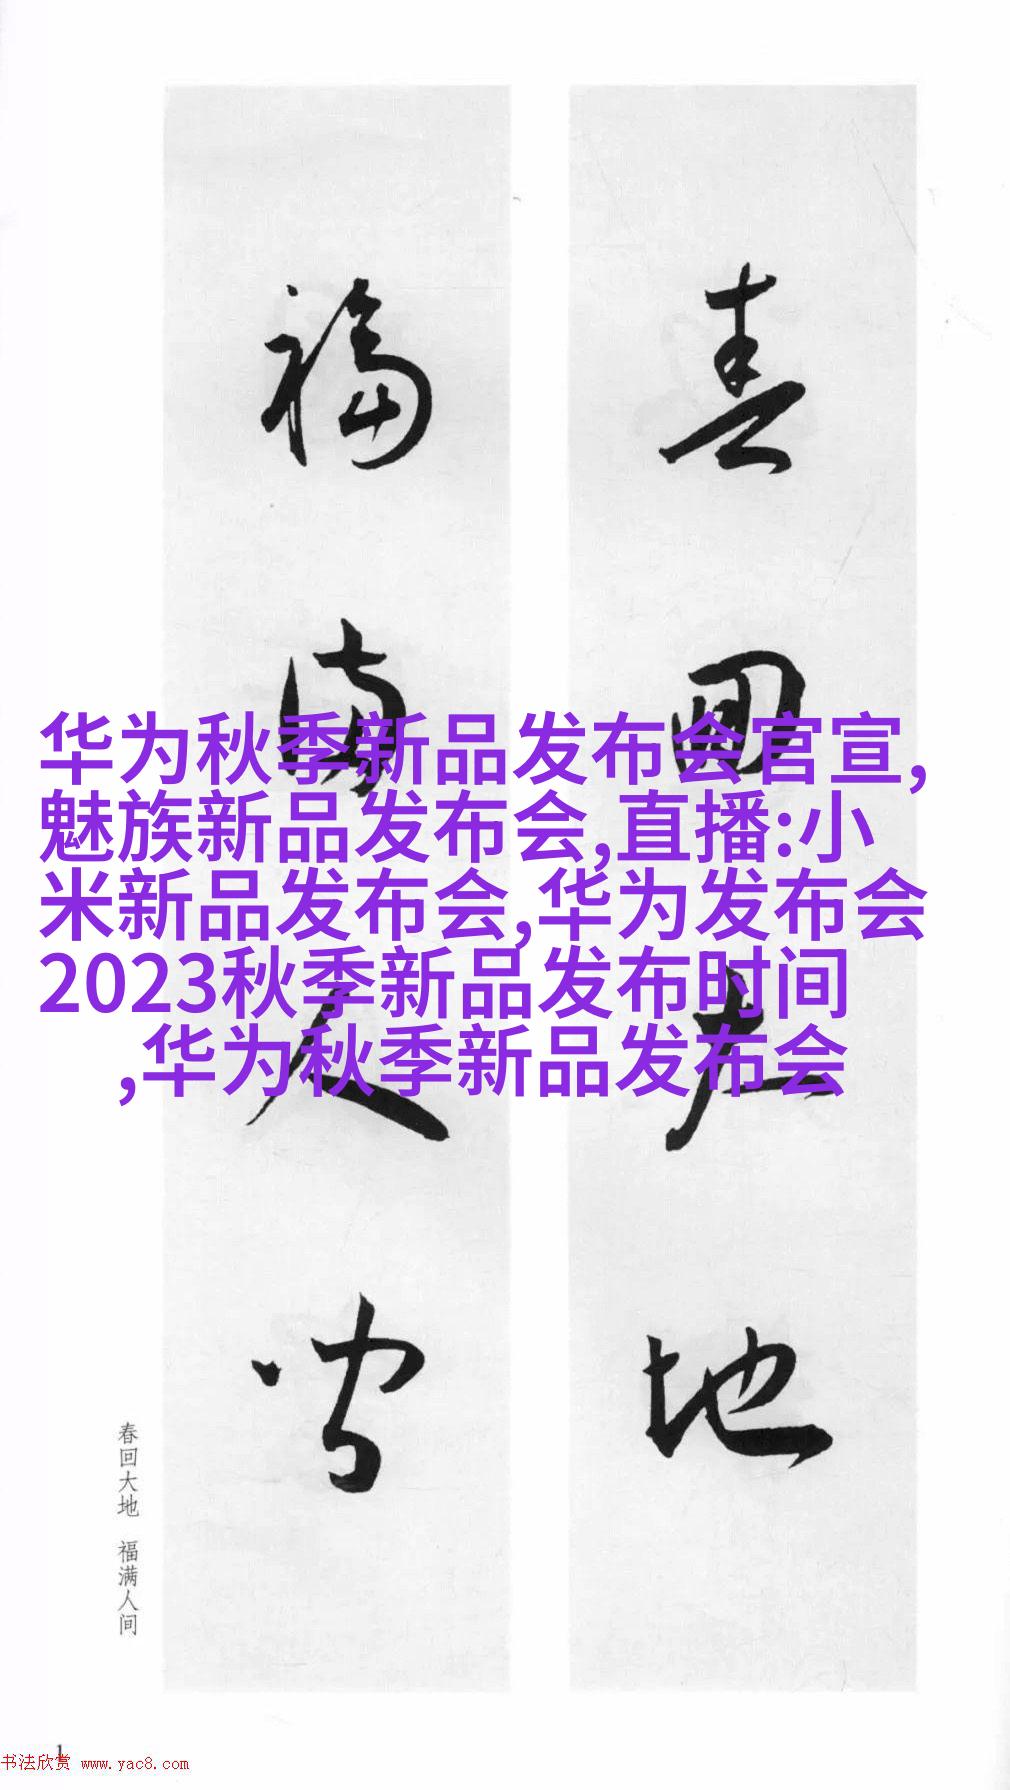 春回大地
福满人间
华为秋季新品发布会官宣,
魅族新品发布会,直播:小
米新品发布会,华为发布会
2023秋季新品发布时间
,华为秋季新品发布会
春回大地 福满人间
1
书法欣赏 www.yac8.com